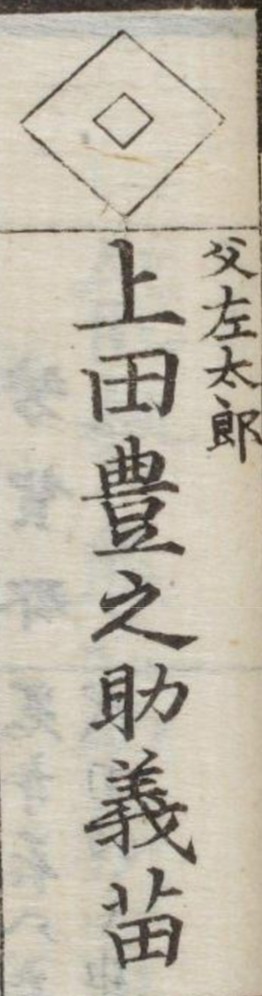 父左太郎
上田豊之助義苗